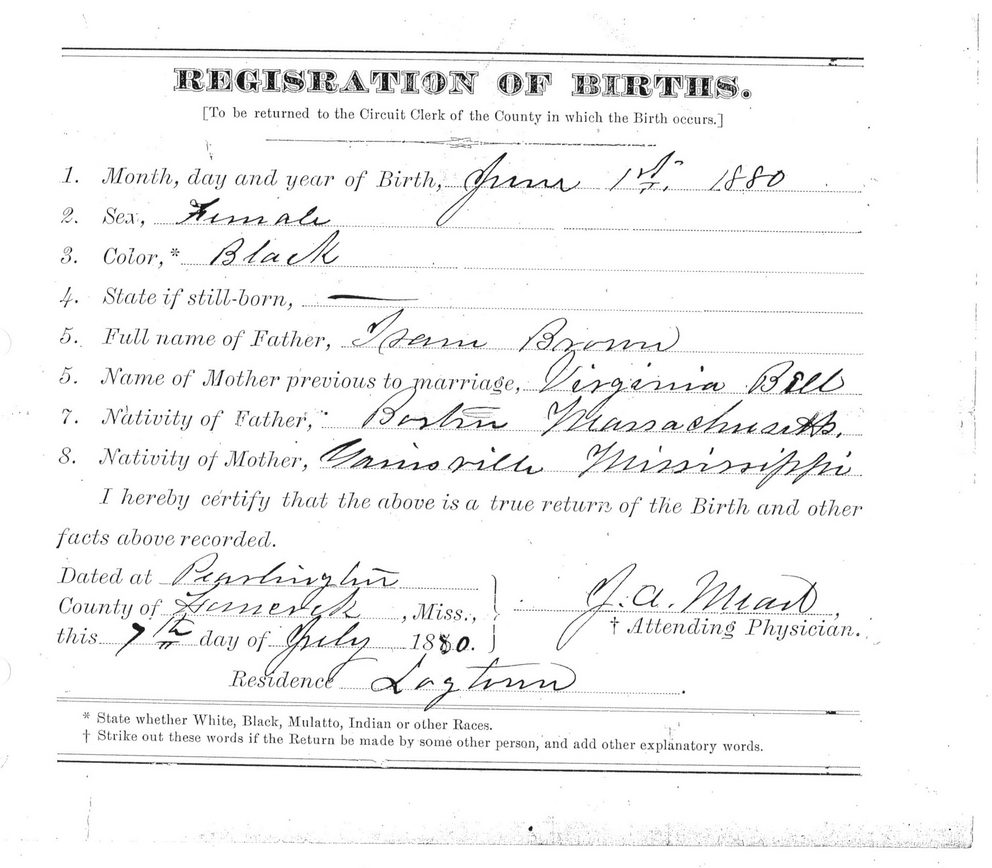 REGISRATION OF BIRTHS.
[To be returned to the Circuit Clerk of the County in which the Birth occurs.]
1. Month, day and year of Birth, June 1st. 1880
2. Sex, Female
3. Color,* Black
4. State if still-born, —
5. Full name of Father, Isam Brown
5. Name of Mother previous to marriage, Virginia Bell
7. Nativity of Father, Boston Massachusetts.
8. Nativity of Mother, Gainsville Mississippi
I hereby certify that the above is a true return of the Birth and other
facts above recorded.
Dated at Pearlington
County of , Miss.,
this 7th day of July 1880.
J. A. Mead,
† Attending Physician.
Residence Logtown.
* State whether White, Black, Mulatto, Indian or other Races.
† Strike out these words if the Return be made by some other person, and add other explanatory words.